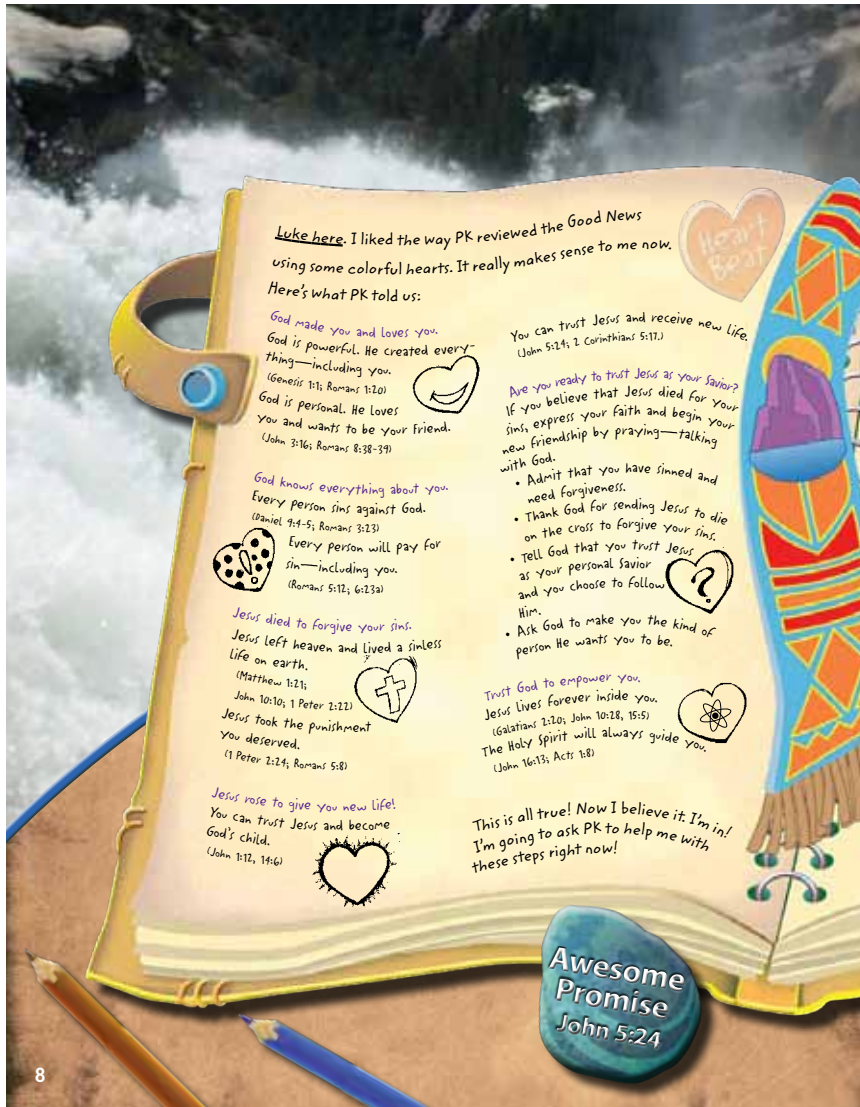 Luke here. I liked the way PK reviewed the Good News
using some colorful hearts. It really makes sense to me now.
Here's what PK told us:
Heart
Beat
God made you and loves you.
God is powerful. He created every-
thing—including you.
(Genesis 1:1; Romans 1:20)
God is personal. He loves
you and wants to be your friend.
(John 3:16; Romans 8:38-39)
God knows everything about you.
Every person sins against God.
(Daniel 9:4-5; Romans 3:23)
Every person will pay for
sin—including you.
(Romans 5:12; 6:23a)
!
Jesus died to forgive your sins.
Jesus left heaven and lived a sinless
life on earth.
(Matthew 1:21;
John 10:10; 1 Peter 2:22)
Jesus took the punishment
you deserved.
(1 Peter 2:24; Romans 5:8)
Jesus rose to give you new life!
You can trust Jesus and become
God's child.
(John 1:12, 14:6)
You can trust Jesus and receive new life.
(John 5:24; 2 Corinthians 5:17.)
Are you ready to trust Jesus as your Savior?
If you believe that Jesus died for your
sins, express your faith and begin your
new friendship by praying—talking
with God.
• Admit that you have sinned and
need forgiveness.
• Thank God for sending Jesus to die
on the cross to forgive your sins.
• Tell God that you trust Jesus
as your personal Savior
and you choose to follow
Him.
?
• Ask God to make you the kind of
person He wants you to be.
Trust God to empower you.
Jesus lives forever inside you.
(Galatians 2:20; John 10:28, 15:5)
The Holy Spirit will always guide you.
(John 16:13; Acts 1:8)
This is all true! Now I believe it. I'm in!
I'm going to ask PK to help me with
these steps right now!
Awesome
Promise
John 5:24
8